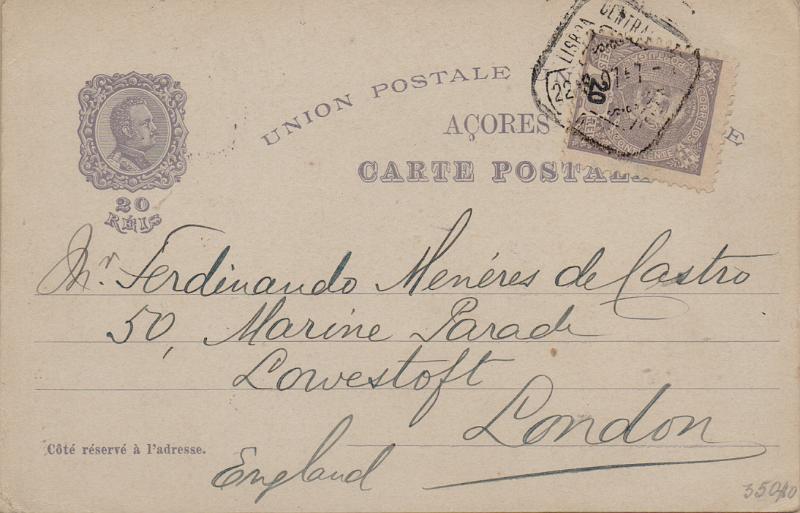 UNION POSTALE
AÇORES
CARTE POSTALE
20
RÉIS
LISBOA CENTRAL
22
20
Mr. Ferdinando Menéres de Castro
50, Marine Parade
Lowestoft
London
England
Côté réservé à l'adresse.